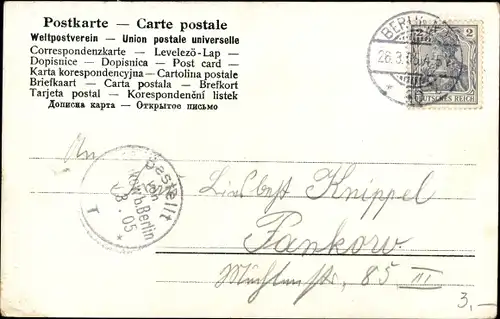 Postkarte — Carte postale
Weltpostverein — Union postale universelle
Correspondenzkarte — Levelezö-Lap —
Dopisnice — Dopisnica — Post card —
Karta korespondencyjna — Cartolina postale
Briefkaart — Carta postala — Brefkort
Tarjeta postal — Korespondenční listek
Дописна карта — Открытое письмо
BERLIN
26.3.05
2 2
DEUTSCHES REICH
An
Bestellt
b. Berlin
3.05
T
Knippel
Pankow
85 III
3,-